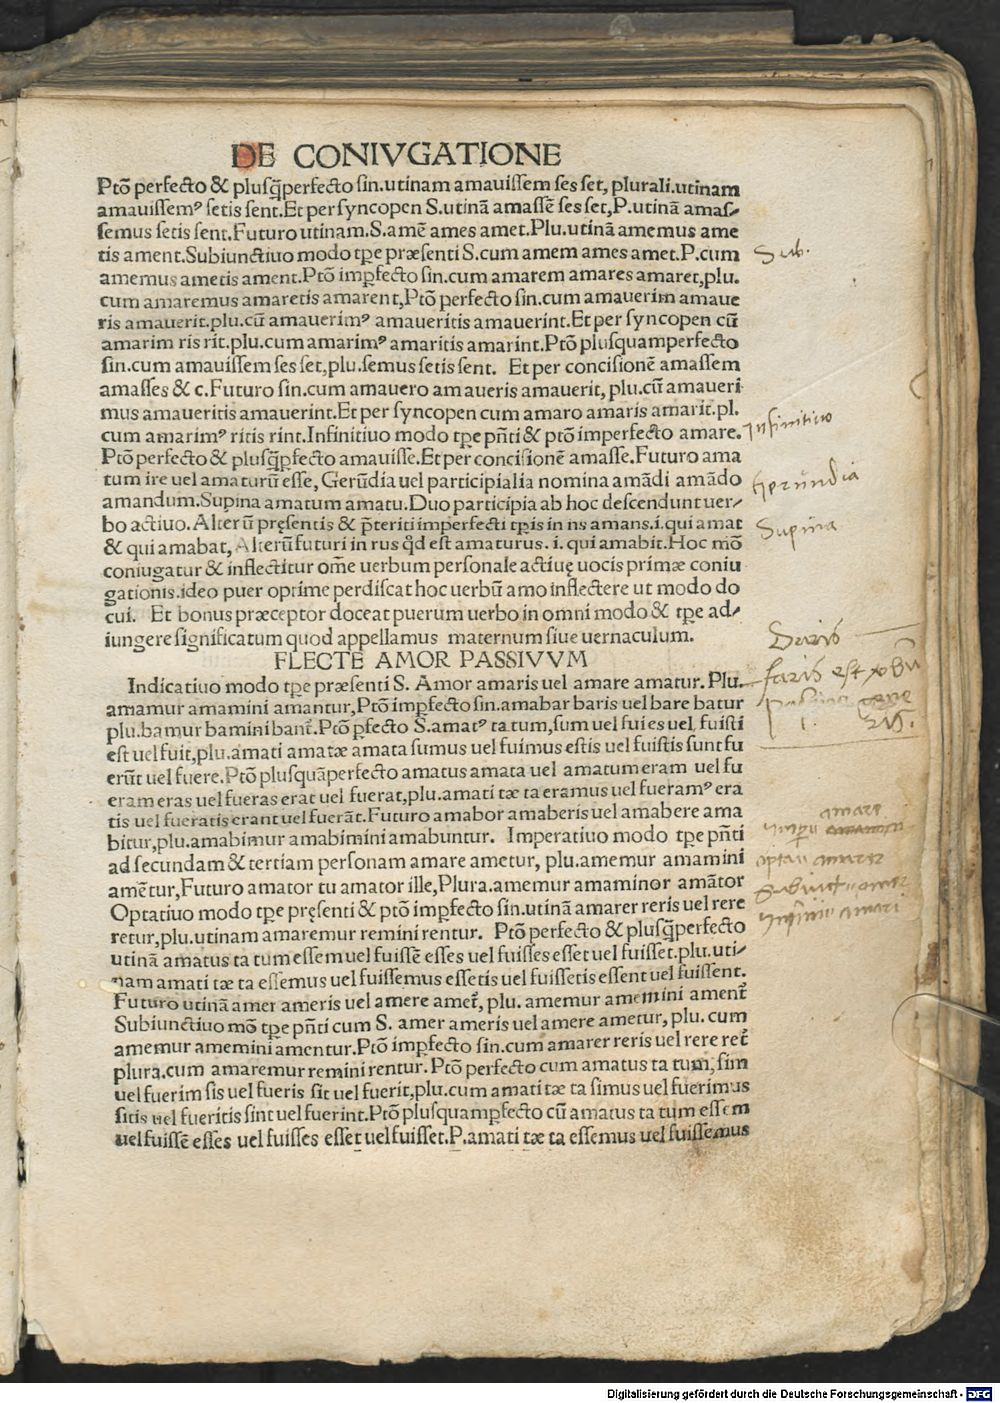 DE CONIVGATIONE
Ptõ perfecto & plusq̃perfecto sin.utinam amauissem ses set, plurali.utinam
amauissemꝰ setis sent.Et per syncopen S.utinã amassẽ ses set,P.utinã amas⸗
semus setis sent.Futuro utinam.S.amẽ ames amet.Plu.utinã amemus ame
tis ament.Subiunctiuo modo tꝑe præsenti S.cum amem ames amet.P.cum
amemus ametis ament.Ptõ imꝑfecto sin.cum amarem amares amaret,plu.
cum amaremus amaretis amarent,Ptõ perfecto sin.cum amauerim amaue
ris amauerit.plu.cũ amauerimꝰ amaueritis amauerint.Et per syncopen cũ
amarim ris rit.plu.cum amarimꝰ amaritis amarint.Ptõ plusquamperfecto
sin.cum amauissem ses set,plu.semus setis sent. Et per concisionẽ amassem
amasses & c.Futuro sin.cum amauero amaueris amauerit, plu.cũ amaueri
mus amaueritis amauerint.Et per syncopen cum amaro amaris amarit.pl.
cum amarimꝰ ritis rint.Infinitiuo modo tꝑe pñti & ptõ imperfecto amare.
Ptõ perfecto & plusq̃ꝑfecto amauisse.Et per concisionẽ amasse.Futuro ama
tum ire uel amaturũ esse, Gerũdia uel participialia nomina amãdi amãdo
amandum.Supina amatum amatu.Duo participia ab hoc descendunt uer⸗
bo actiuo. Alterũ pręsentis & p̃teriti imperfecti tꝑis in ns amans.i.qui amat
& qui amabat, Alterũ futuri in rus qd̃ est amaturus. i. qui amabit.Hoc mõ
coniugatur & inflectitur om̃e uerbum personale actiuę uocis primæ coniu
gationis.ideo puer oprime perdiscat hoc uerbũ amo inflectere ut modo do
cui. Et bonus præceptor doceat puerum uerbo in omni modo & tꝑe ad⸗
iungere significatum quod appellamus maternum siue uernaculum.
FLECTE AMOR PASSIVVM
Indicatiuo modo tꝑe præsenti S. Amor amaris uel amare amatur. Plu.
amamur amamini amantur,Ptõ imꝑfecto sin.amabar baris uel bare batur
plu.bamur bamini bant᷑.Ptõ ꝑfecto S.amatꝰ ta tum,sum uel fui es uel fuisti
est uel fuit,plu.amati amatæ amata sumus uel fuimus estis uel fuistis sunt fu
erũt uel fuere.Ptõ plusquãperfecto amatus amata uel amatum eram uel fu
eram eras uel fueras erat uel fuerat,plu.amati tæ ta eramus uel fueramꝰ era
tis uel fueratis erant uel fuerãt.Futuro amabor amaberis uel amabere ama
bitur,plu.amabimur amabimini amabuntur. Imperatiuo modo tꝑe pñti
ad secundam & tertiam personam amare ametur, plu.amemur amamini
amẽtur,Futuro amator tu amator ille,Plura.amemur amaminor amãtor
Optatiuo modo tꝑe pręsenti & ptõ imꝑfecto sin.utinã amarer reris uel rere
retur,plu.utinam amaremur remini rentur. Ptõ perfecto & plusq̃perfecto
utinã amatus ta tum essem uel fuissẽ esses uel fuisses esset uel fuisset.plu.uti⸗
nam amati tæ ta essemus uel fuissemus essetis uel fuissetis essent uel fuissent.
Futuro utinã amer ameris uel amere amet᷑, plu. amemur amemini ament᷑
Subiunctiuo mõ tꝑe pñti cum S. amer ameris uel amere ametur, plu. cum
amemur amemini amentur.Ptõ imꝑfecto sin.cum amarer reris uel rere ret᷑
plura.cum amaremur remini rentur. Ptõ perfecto cum amatus ta tum, sim
uel fuerim sis uel fueris sit uel fuerit,plu.cum amati tæ ta simus uel fuerimus
sitis uel fueritis sint uel fuerint.Ptõ plusquamꝑfecto cũ amatus ta tum essem
uel fuissẽ esses uel fuisses esset uel fuisset.P.amati tæ ta essemus uel fuissemus
Sub.
Infinitiuo
Gerũndia
Supina
faris est
amare
amarer
amari
Digitalisierung gefördert durch die Deutsche Forschungsgemeinschaft - DFG